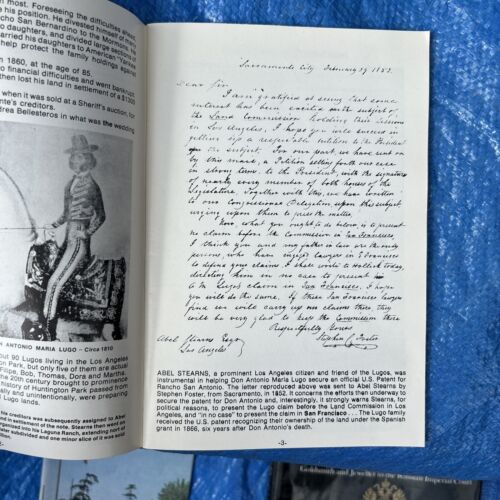 most. Foreseeing the difficulties ahead,
his position. He divested himself of many
cho San Bernardino to the Mormons. He
d daughters, divided large sections of
arried his daughters to American "Yankee
help protect the family holdings against
1860, at the age of 85.
financial difficulties and went bankrupt,
then lost his land in settlement of a $1300
when it was sold at a Sheriff's auction, for
nte's creditors.
drea Ballesteros in what was the wedding
N ANTONIO MARIA LUGO – Circa 1810
out 90 Lugos living in the Los Angeles
on Park, but only five of them are actual
Filipe, Bob, Thomas, Dora and Martha.
the 20th century brought to prominence
history of Huntington Park passed from
ally and unintentionally, were preparing
lands.
his creditors was subsequently assigned to Abel
n settlement of the note. Stearns went on
ganized into his Laguna Ranch, extending north
ter subdivided and one minor slice of it was sold
Sacramento City February 1852.
Dear Sir,
I am gratified at seeing that some
interest has been excited on the subject of
the Land Commission holding their sessions
in Los Angeles. I hope you will succeed in
getting up a respectable petition to the President
on the subject. For our part we have sent on
by this mail, a Petition setting forth our case
in strong terms to the President, with the signatures
of nearly every member of both houses of the
Legislature. Together with this, we have written
to our Congressional Delegation upon this subject
urging upon them to press the matter.
Now what you ought to do below is to present
no claim before the Commission in San Francisco.
I think you and my father in law are the only
persons who have engaged lawyers in S Francisco
to defend your claims. I shall write to today,
directing them in no case to present
Lugo's claim in San Francisco. I hope
you will do the same. If these San Francisco lawyers
find we will carry up our claims there, they
will be very glad to keep the Commission there
Respectfully Yours
Abel Stearns Esqr
Stephen C. Foster
Los Angeles
ABEL STEARNS, a prominent Los Angeles citizen and friend of the Lugos, was
instrumental in helping Don Antonio Maria Lugo secure an official U.S. Patent for
Rancho San Antonio. The letter reproduced above was sent to Abel Stearns by
Stephen Foster, from Sacramento, in 1852. It concerns the effort then underway to
secure the patent for Don Antonio and, interestingly, it strongly warns Stearns, for
political reasons, to present the Lugo claim before the Land Commission in Los
Angeles, and "in no case" to present the claim in San Francisco . . . The Lugo family
received the U.S. patent recognizing their ownership of the land under the Spanish
grant in 1866, six years after Don Antonio's death.
-3-
Goldsmith and Jeweller to the Russian Imperial Court